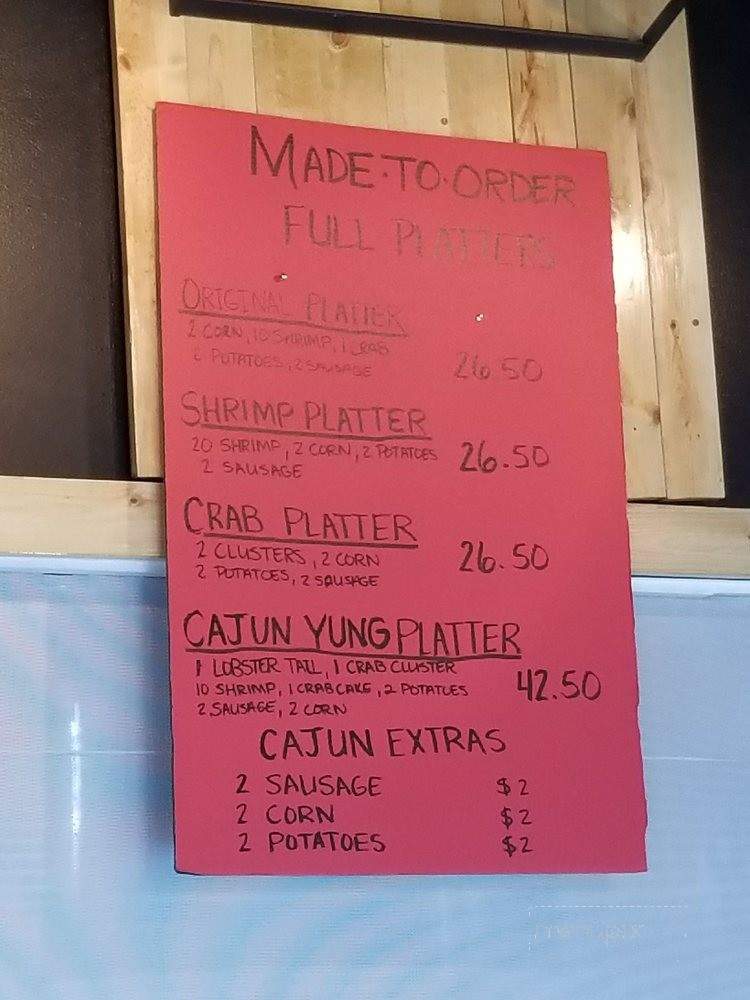 MADE·TO·ORDER
FULL PLATTERS
ORIGINAL PLATTER
2 CORN, 10 SHRIMP, 1 CRAB
2 POTATOES, 2 SAUSAGE 26.50
SHRIMP PLATTER
20 SHRIMP, 2 CORN, 2 POTATOES 26.50
2 SAUSAGE
CRAB PLATTER
2 CLUSTERS, 2 CORN 26.50
2 POTATOES, 2 SAUSAGE
CAJUN YUNG PLATTER
1 LOBSTER TAIL, 1 CRAB CLUSTER
10 SHRIMP, 1 CRABCAKE, 2 POTATOES 42.50
2 SAUSAGE, 2 CORN
CAJUN EXTRAS
2 SAUSAGE $2
2 CORN $2
2 POTATOES $2
menupix